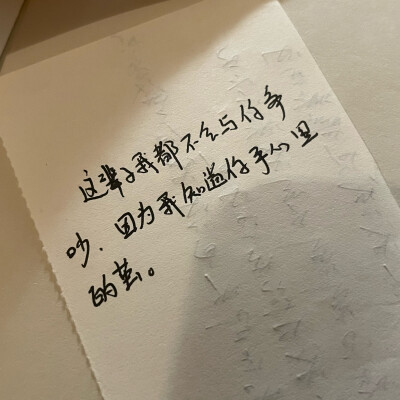 这辈子我都不会与你争
吵.因为我知道你手心里
的茧。